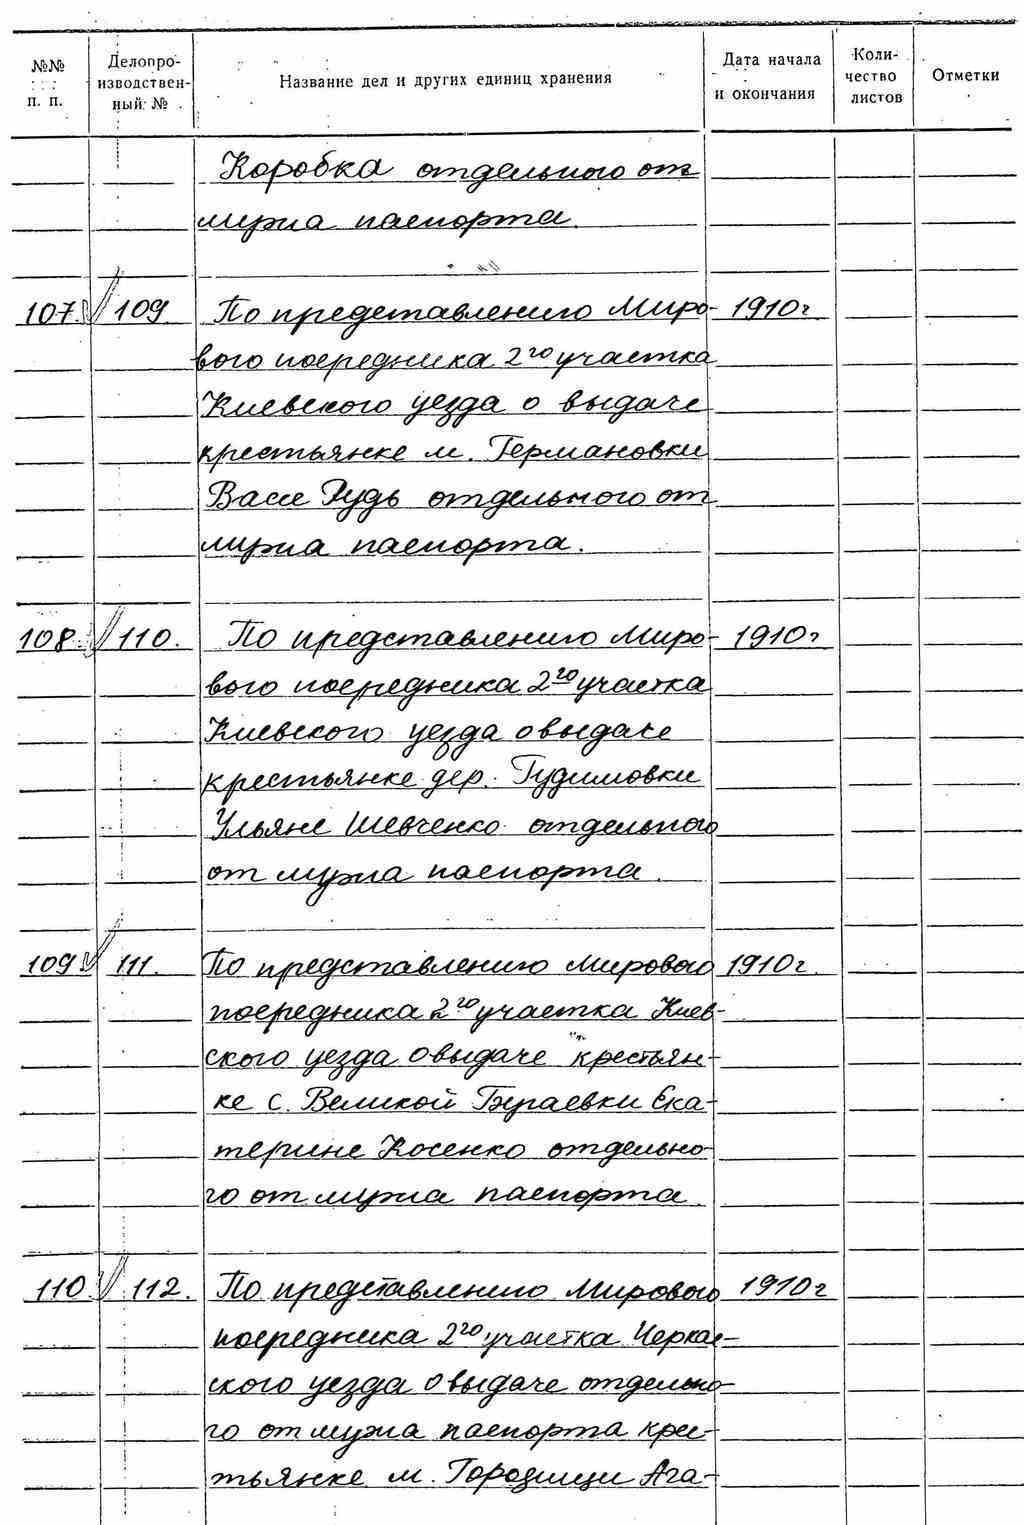 №№ п. п. Делопроизводственный № Название дел и других единиц хранения Дата начала и окончания Количество листов Отметки
Коробка отдельного от
мужа паспорта.
107. 109 По представлению Миро- 1910г
вого посредника 2го участка
Киевского уезда о выдаче
крестьянке м. Германовки
Васе Рудь отдельного от
мужа паспорта.
108. 110. По представлению Миро- 1910г
вого посредника 2го участка
Киевского уезда о выдаче
крестьянке дер. Гудимовки
Ульяне Шевченко отдельного
от мужа паспорта.
109 111. По представлению Мирового 1910г.
посредника 2го участка Киев-
ского уезда о выдаче крестьян-
ке с. Великой Бугаевки Ека-
терине Косенко отдельно-
го от мужа паспорта.
110. 112. По представлению Мирового 1910г
посредника 2го участка Черкас-
ского уезда о выдаче отдельно-
го от мужа паспорта крес-
тьянке м. Городищи Ага-